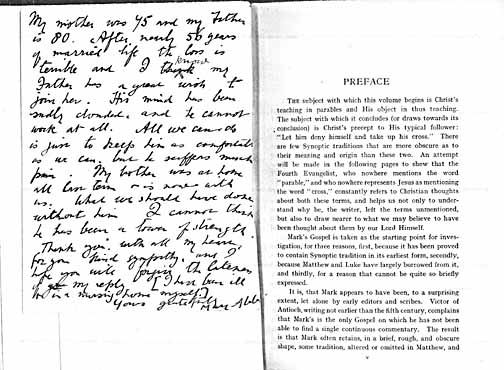 My mother was 75 and my Father
is 80. After nearly 50 years
of married life the loss is
terrible and I know my
Father has a great wish to
join her. His mind has been
sadly clouded, and he cannot
work at all. All we can do
is just to keep him as comfortable
as we can, but he suffers much
pain. My brother was at home
all last term & is now with
us. What we should have done
without him I cannot think
he has been a tower of strength.
Thank you with all my heart
for your kind sympathy, and I
hope you will forgive the lateness
of my reply. [I have been ill
in a nursing home myself.]
Yours gratefully
PREFACE
THE subject with which this volume begins is Christ's
teaching in parables and His object in thus teaching.
The subject with which it concludes (or draws towards its
conclusion) is Christ's precept to His typical follower:
"Let him deny himself and take up his cross." There
are few Synoptic traditions that are more obscure as to
their meaning and origin than these two. An attempt
will be made in the following pages to shew that the
Fourth Evangelist, who nowhere mentions the word
"parable," and who nowhere represents Jesus as mentioning
the word "cross," constantly refers to Christian thoughts
about both these terms, and helps us not only to under-
stand why he, the writer, left the terms unmentioned,
but also to draw nearer to what we may believe to have
been thought about them by our Lord Himself.
Mark's Gospel is taken as the starting point for investi-
gation, for three reasons, first, because it has been proved
to contain Synoptic tradition in its earliest form, secondly,
because Matthew and Luke have largely borrowed from it,
and thirdly, for a reason that cannot be quite so briefly
expressed.
It is, that Mark appears to have been, to a surprising
extent, let alone by early editors and scribes. Victor of
Antioch, writing not earlier than the fifth century, complains
that Mark's is the only Gospel on which he has not been
able to find a single continuous commentary. The result
is that Mark often retains, in a brief, rough, and obscure
shape, some tradition, altered or omitted in Matthew, and
v